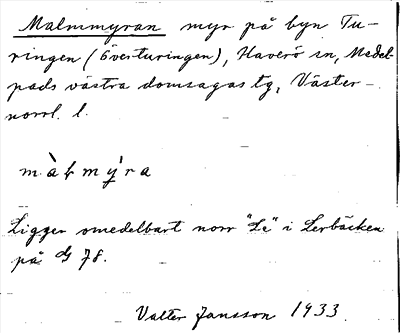 Malmmyran myr på byn Tu-
ringen (Överturingen), Haverö sn, Medel-
pads västra domsagas tg, Väster-
norrl. l.
màḷmýra
Ligger omedelbart norr "Le" i Lerbäcken
på G 78.
Valter Jansson 1933